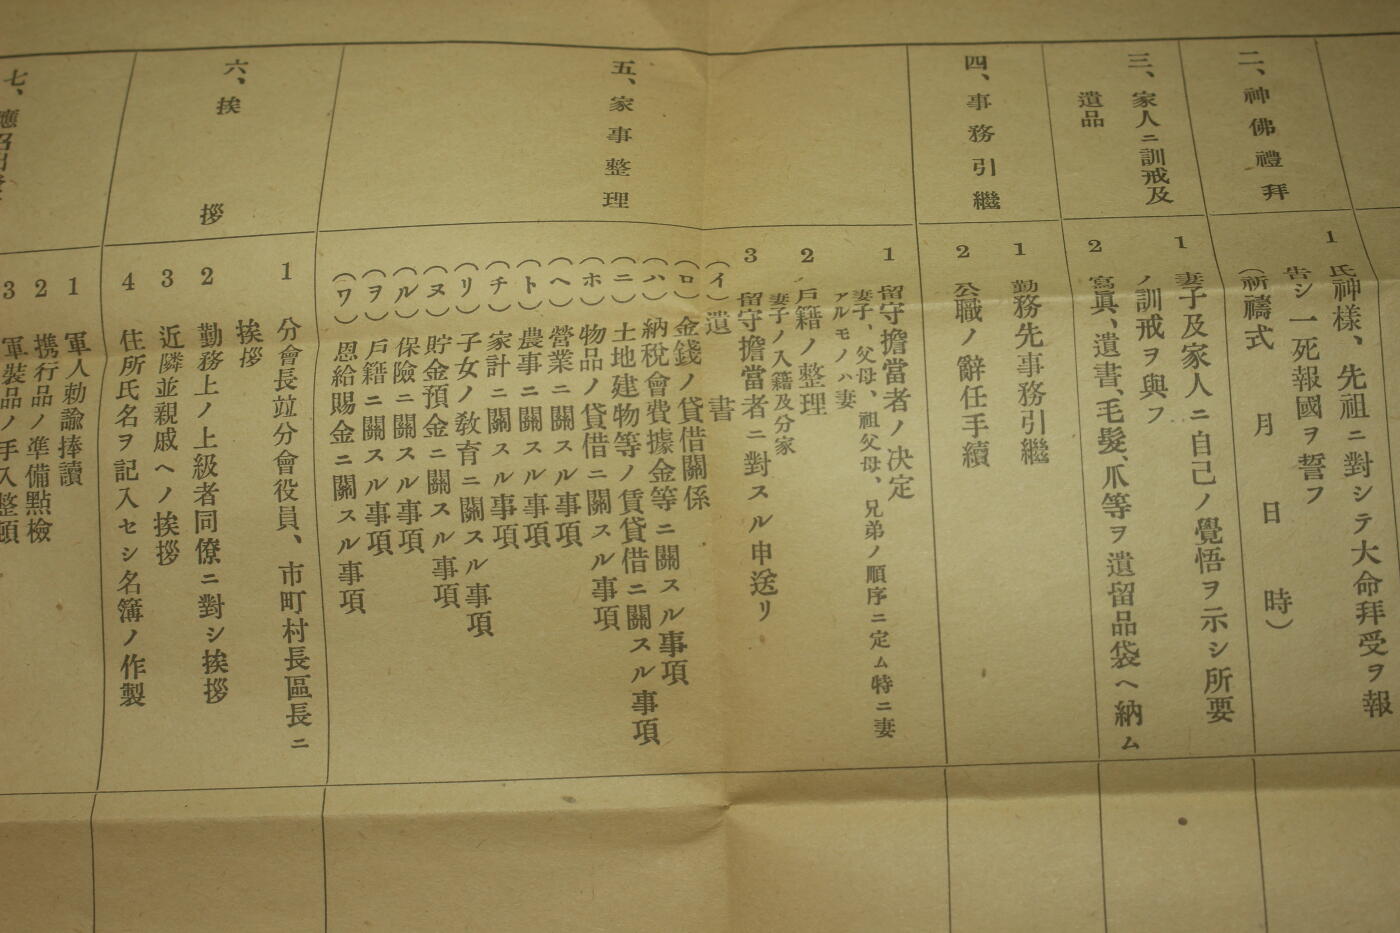 二、神佛禮拜
1 氏神様、先祖ニ對シテ大命拜受ヲ報
告シ一死報國ヲ誓フ
(祈禱式 月 日 時)
三、家人ニ訓戒及
遺品
1 妻子及家人ニ自己ノ覺悟ヲ示シ所要
ノ訓戒ヲ與フ
2 寫眞、遺書、毛髮、爪等ヲ遺留品袋ヘ納ム
四、事務引繼
1 勤務先事務引繼
2 公職ノ辭任手續
五、家事整理
1 留守擔當者ノ决定
妻子、父母、祖父母、兄弟ノ順序ニ定ム特ニ妻
アルモノハ妻
2 戸籍ノ整理
妻子ノ入籍及分家
3 留守擔當者ニ對スル申送リ
(イ)遺書
(ロ)金錢ノ貸借關係
(ハ)納税會費據金等ニ關スル事項
(ニ)土地建物等ノ賃貸借ニ關スル事項
(ホ)物品ノ貸借ニ關スル事項
(ヘ)營業ニ關スル事項
(ト)農事ニ關スル事項
(チ)家計ニ關スル事項
(リ)子女ノ敎育ニ關スル事項
(ヌ)貯金預金ニ關スル事項
(ル)保險ニ關スル事項
(ヲ)戸籍ニ關スル事項
(ワ)恩給賜金ニ關スル事項
六、挨拶
1 分會長竝分會役員、市町村長區長ニ
挨拶
2 勤務上ノ上級者同僚ニ對シ挨拶
3 近隣並親戚ヘノ挨拶
4 住所氏名ヲ記入セシ名簿ノ作製
七、應召
1 軍人勅諭捧讀
2 携行品ノ準備點檢
3 軍裝品ノ手入整頓